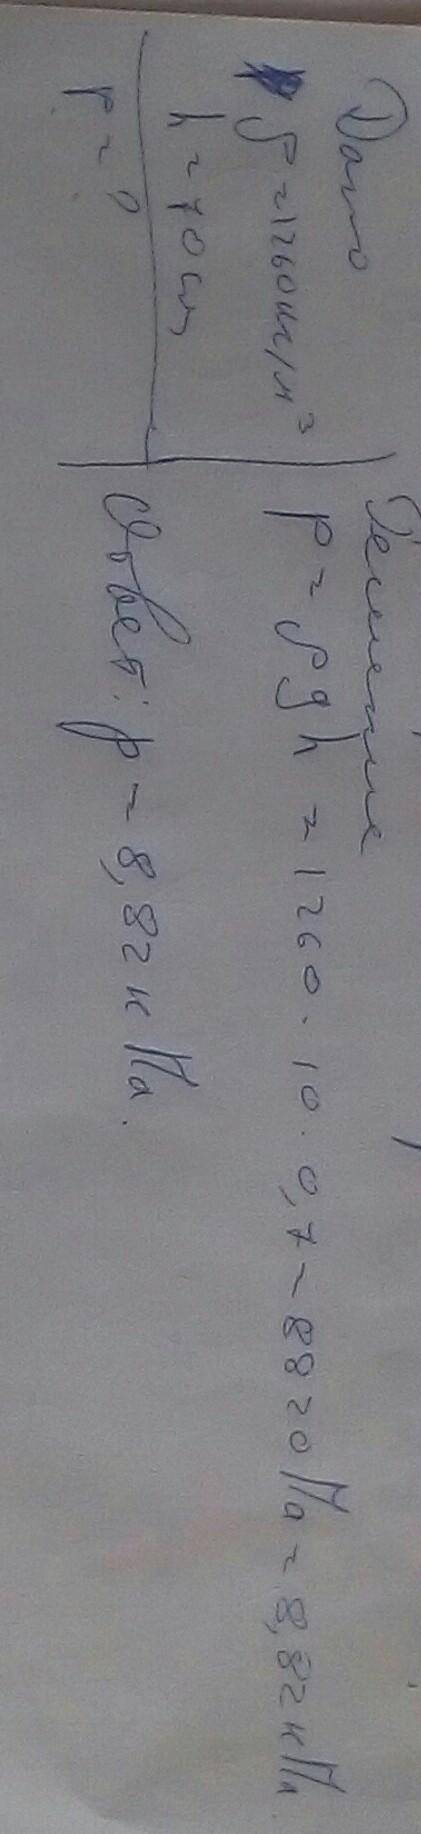 Дано
ρ = 1260 кг/м³
h = 70 см
p = ?
Решение
p = ρgh = 1260 · 10 · 0,7 = 8820 Па = 8,82 кПа.
Ответ: p = 8,82 кПа.